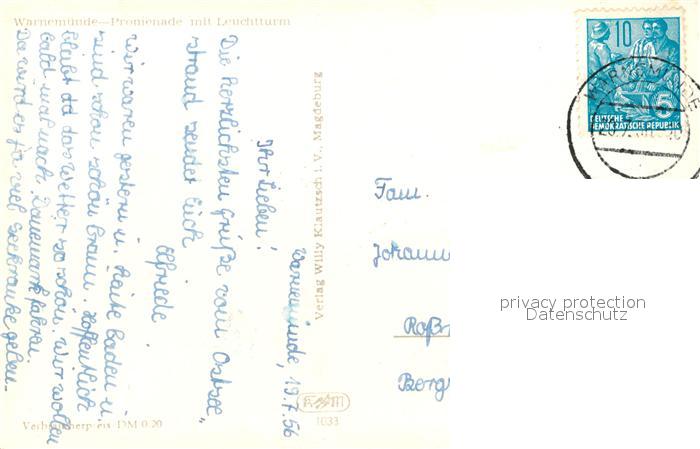 Warnemünde—Promenade mit Leuchtturm
Warnemünde, 19.7.56
Ihr Lieben!
Die herzlichsten Grüße vom Ostsee-
strand sendet Euch
Elfriede
Wir waren gestern u. heute baden u.
sind schon schön braun. Hoffentlich
bleibt das Wetter so schön. Wir wollen
bald mal nach Dänemark fahren.
Da wird es ja viel Seekranke geben.
Verlag Willy Klautzsch i. V. Magdeburg
Verbraucherpreis DM 0.20
1033
10
5
DEUTSCHE
DEMOKRATISCHE REPUBLIK
WARNEMÜNDE
Fam.
Johann
Roß
Berg
privacy protection
Datenschutz